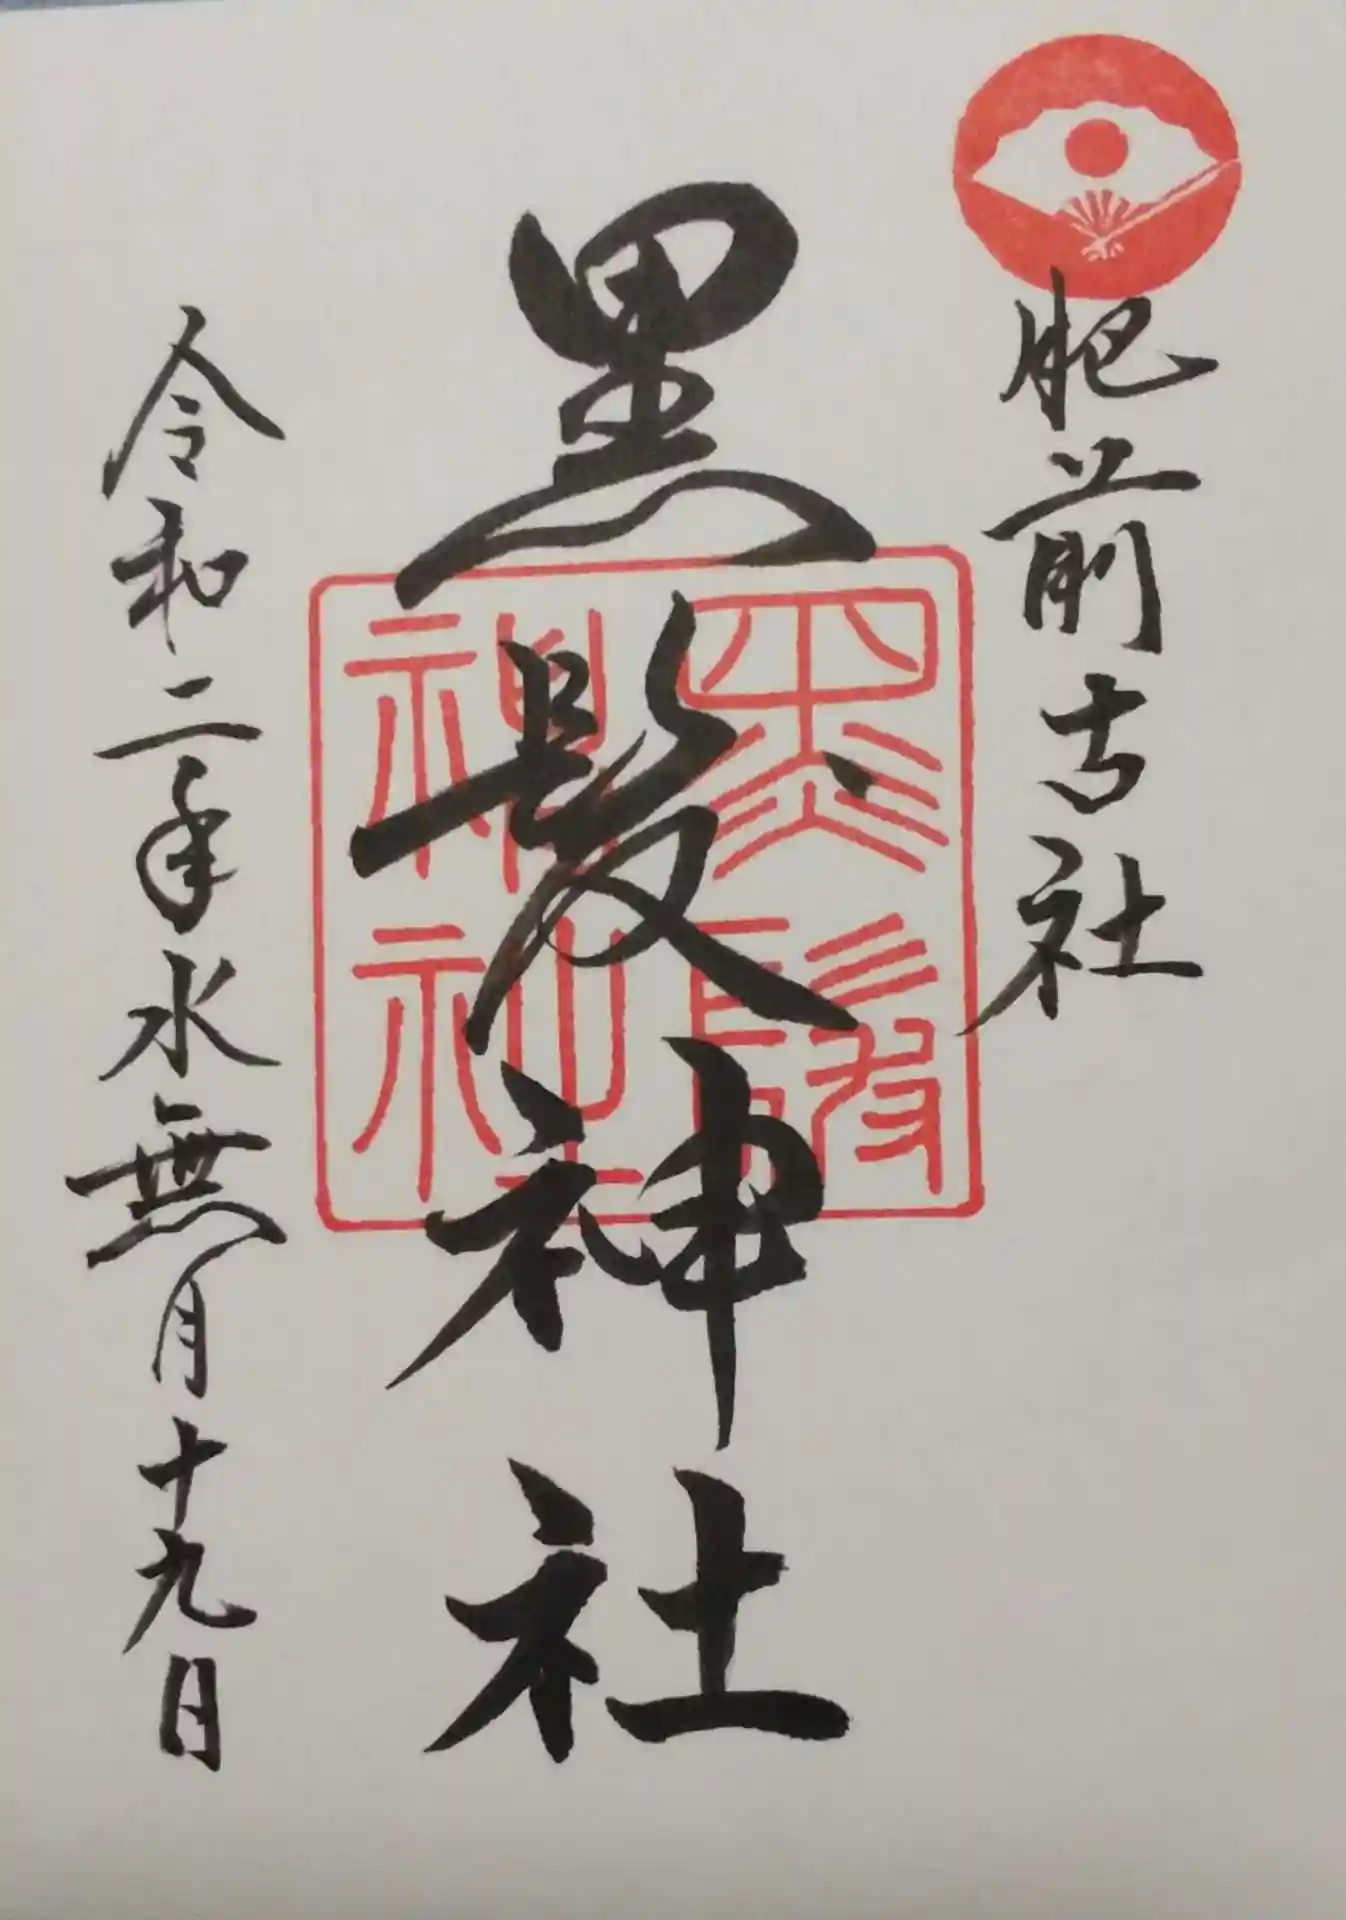 肥前古社
黒髪神社
黒髪神社
令和二年水無月十九日